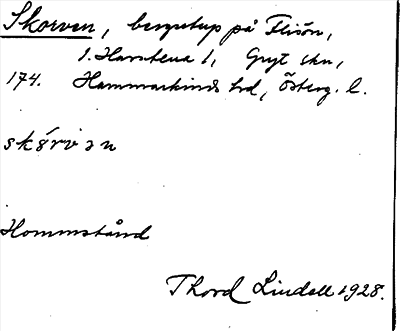 Skorven, bergstup på Flisön,
1. Harstena 1, Gryt skn,
174. Hammarkinds hd, Österg. l.
skórvən
Hommstånd
Thord Lindell 1928.